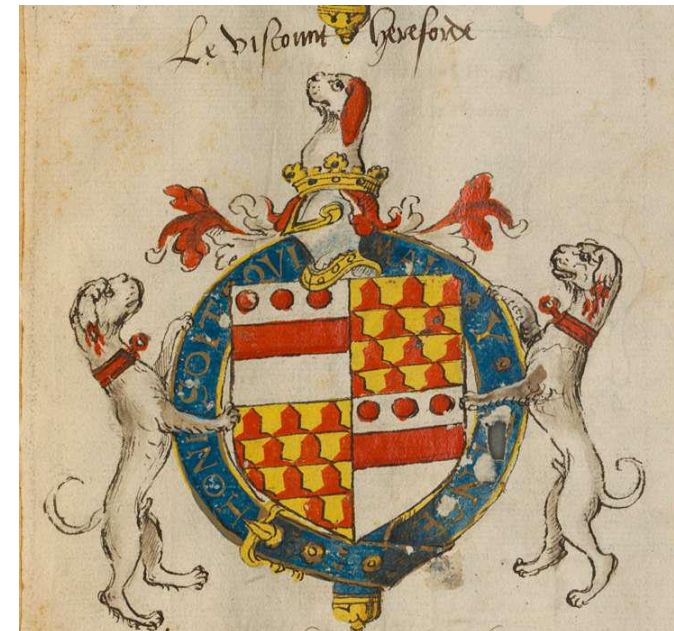 Le viscount hereforde
HONI SOIT QVI MAL Y